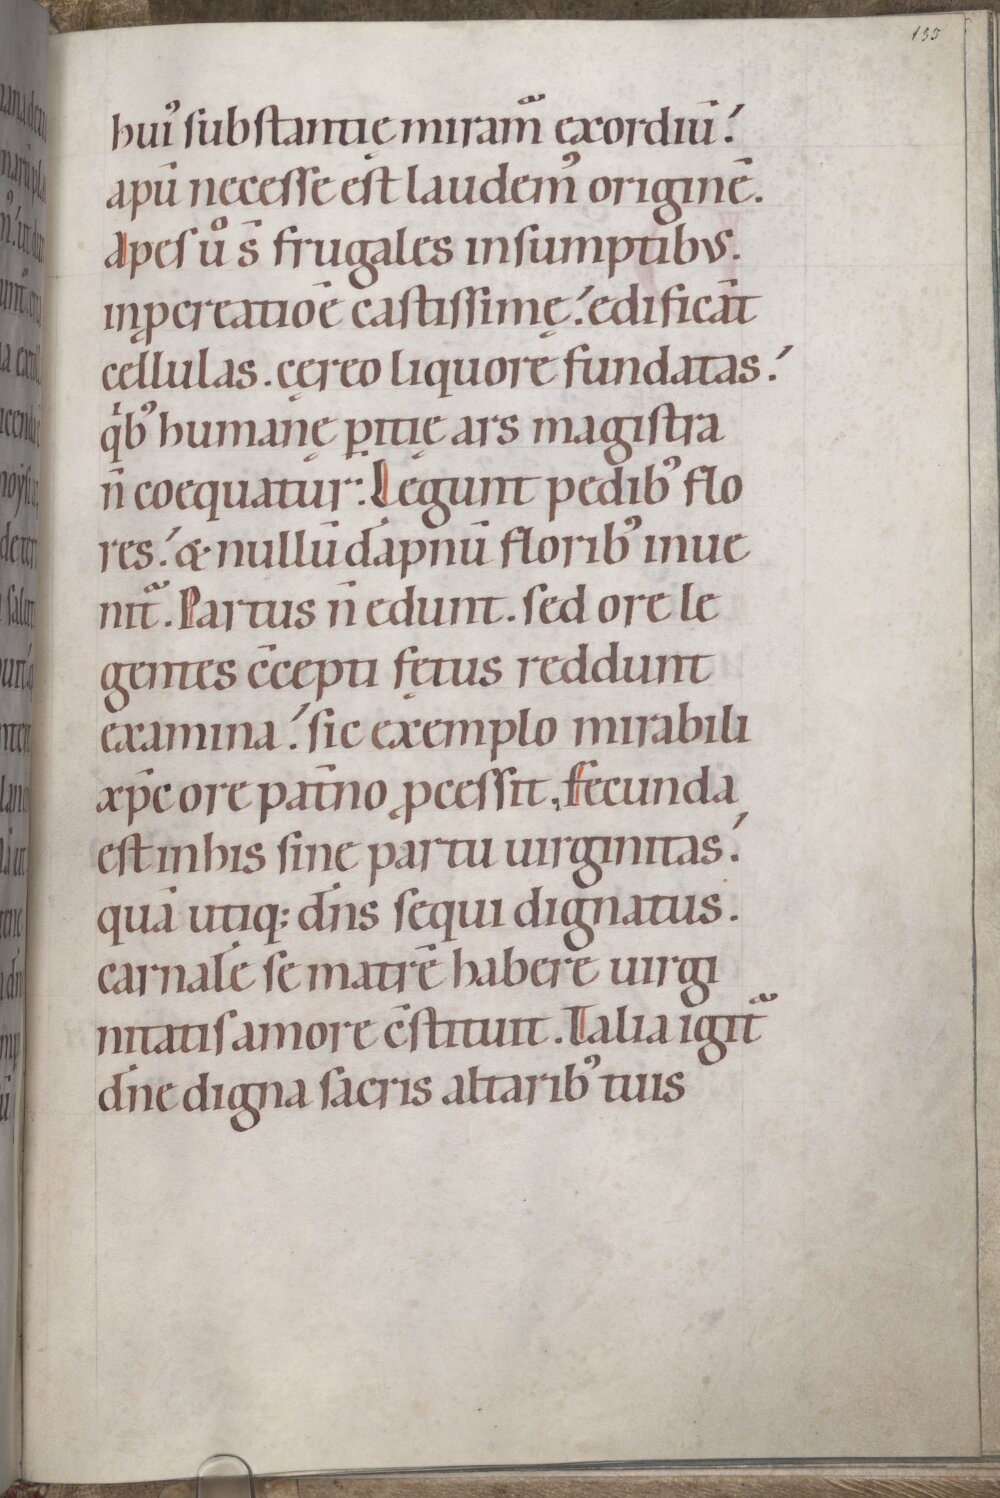 135
huiꝰ substantię miramᷓ exordiū.
apū necesse est laudemꝰ originē.
Apes uͦ s̄ frugales in sumptibus.
in ꝓcreatiōe castissimę. edificāt
cellulas. cęreo liquore fundatas.
qͥbꝰ humanę ꝑitię ars magistra
n̄ coequatur. Legunt pedibꝰ flo
res. & nullū dāpnū floribꝰ inue
nitᷓ. Partus n̄ edunt. sed ore le
gentes c̄cepti fętus reddunt
examina. sic exemplo mirabili
xp̄c ore pat̄no ꝓcessit. Fecunda
est in his sine partu uirginitas.
quā utiq; dn̄s sequi dignatus.
carnalē se matrē habere uirgi
nitatis amore c̄stituit. Talia igitᷓ
dn̄e digna sacris altaribꝰ tuis